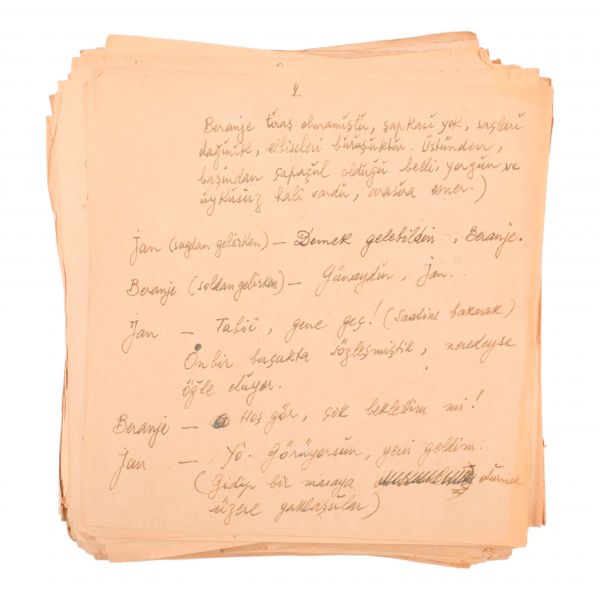 4.
Beranje tıraş olmamıştır, şapkası yok, saçları
dağınık, elbiseleri buruşuktur. Üstünden,
başından şapaşal olduğu belli, yorgun ve
uykusuz hali vardır, arasıra esner.)
Jan (sağdan gelirken) — Demek gelebildin, Beranje.
Beranje (soldan gelirken) — Günaydın, Jan.
Jan — Tabiî, gene geç! (saatine bakarak)
On bir buçukta sözleşmiştik, neredeyse
öğle oluyor.
Beranje — Hoş gör, çok beklettim mi!
Jan — Yô. Görüyorsun, yeni geldim.
(Gidip bir masaya oturmak
üzere yaklaşırlar)